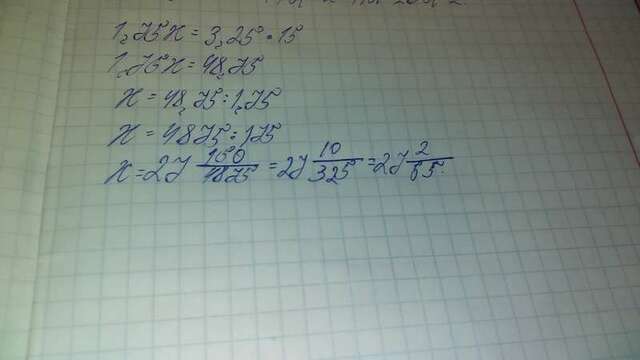 1,75x = 3,25 · 15
1,75x = 48,75
x = 48,75 : 1,75
x = 4875 : 175
x = 27 150/4875 = 27 10/325 = 27 2/65.